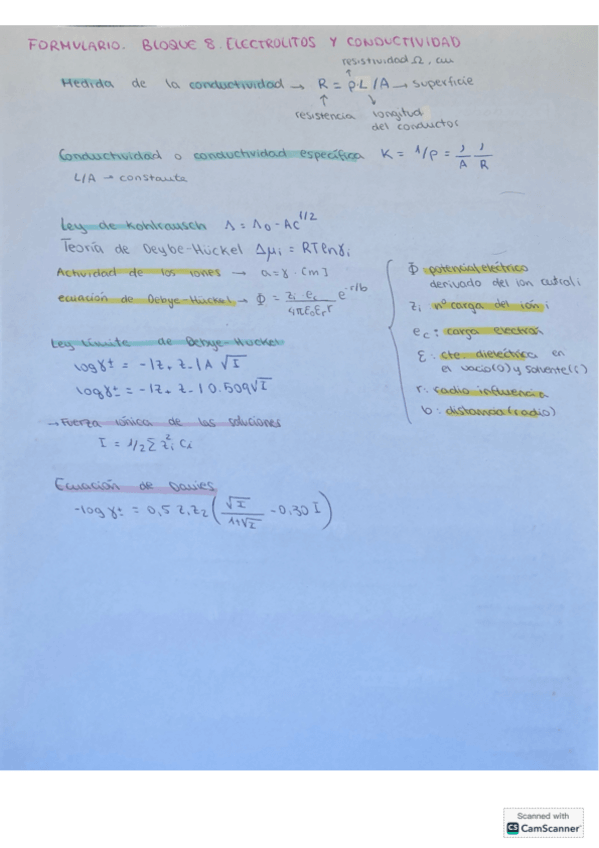 FORMULARIO. BLOQUE 8. ELECTROLITOS Y CONDUCTIVIDAD
resistividad Ω, cm
Medida de la conductividad → R = ρ L/A → superficie
resistencia longitud
del conductos
Conductividad o conductividad específica K = 1/ρ = 1/A 1/R
L/A → constante
Ley de Kohlrausch Λ = Λo - Ac^1/2
Teoría de Deybe-Hückel Δμi = RTlnγi
Actividad de los iones → a=γ·[m]
ecuación de Debye-Hückel → Φ = zi ec / 4πεoεr r e^-r/b
Φ: potencial eléctrico
derivado del ion central i
zi nº carga del ión i
ec: carga electron
ε: cte. dieléctrica en
el vacío(o) y solvente(s)
r: radio influencia
b: distancia (radio)
Ley Límite de Debye-Huckel
logγ± = -|z+ z-|A √I
logγ± = -|z+ z-| 0.509√I
→ Fuerza iónica de las soluciones
I = 1/2 Σ zi² Ci
Ecuación de Davies
-log γ± = 0,5 z1z2 (√I / 1+√I - 0,30 I)
Scanned with
CS CamScanner